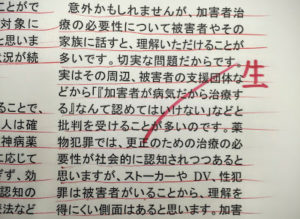 ことがで
対象に
と思いま
状況が続
人は確
神病薬
に応じて
ぎず、効
認知の
療法など
意外かもしれませんが、加害者治
療の必要性について被害者やその
家族に話すと、理解いただけることが
多いです。切実な問題だからです。
実はその周辺、被害者の支援団体な
どから「『加害者が病気だから治療す
る』なんて認めてはいけない」などと
批判を受けることが多いのです。薬
物犯罪では、更正のための治療の必
要性が社会的に認知されつつあると
思いますが、ストーカーや DV、性犯
罪は被害者がいることから、理解を
得にくい側面はあると思います。加害
生